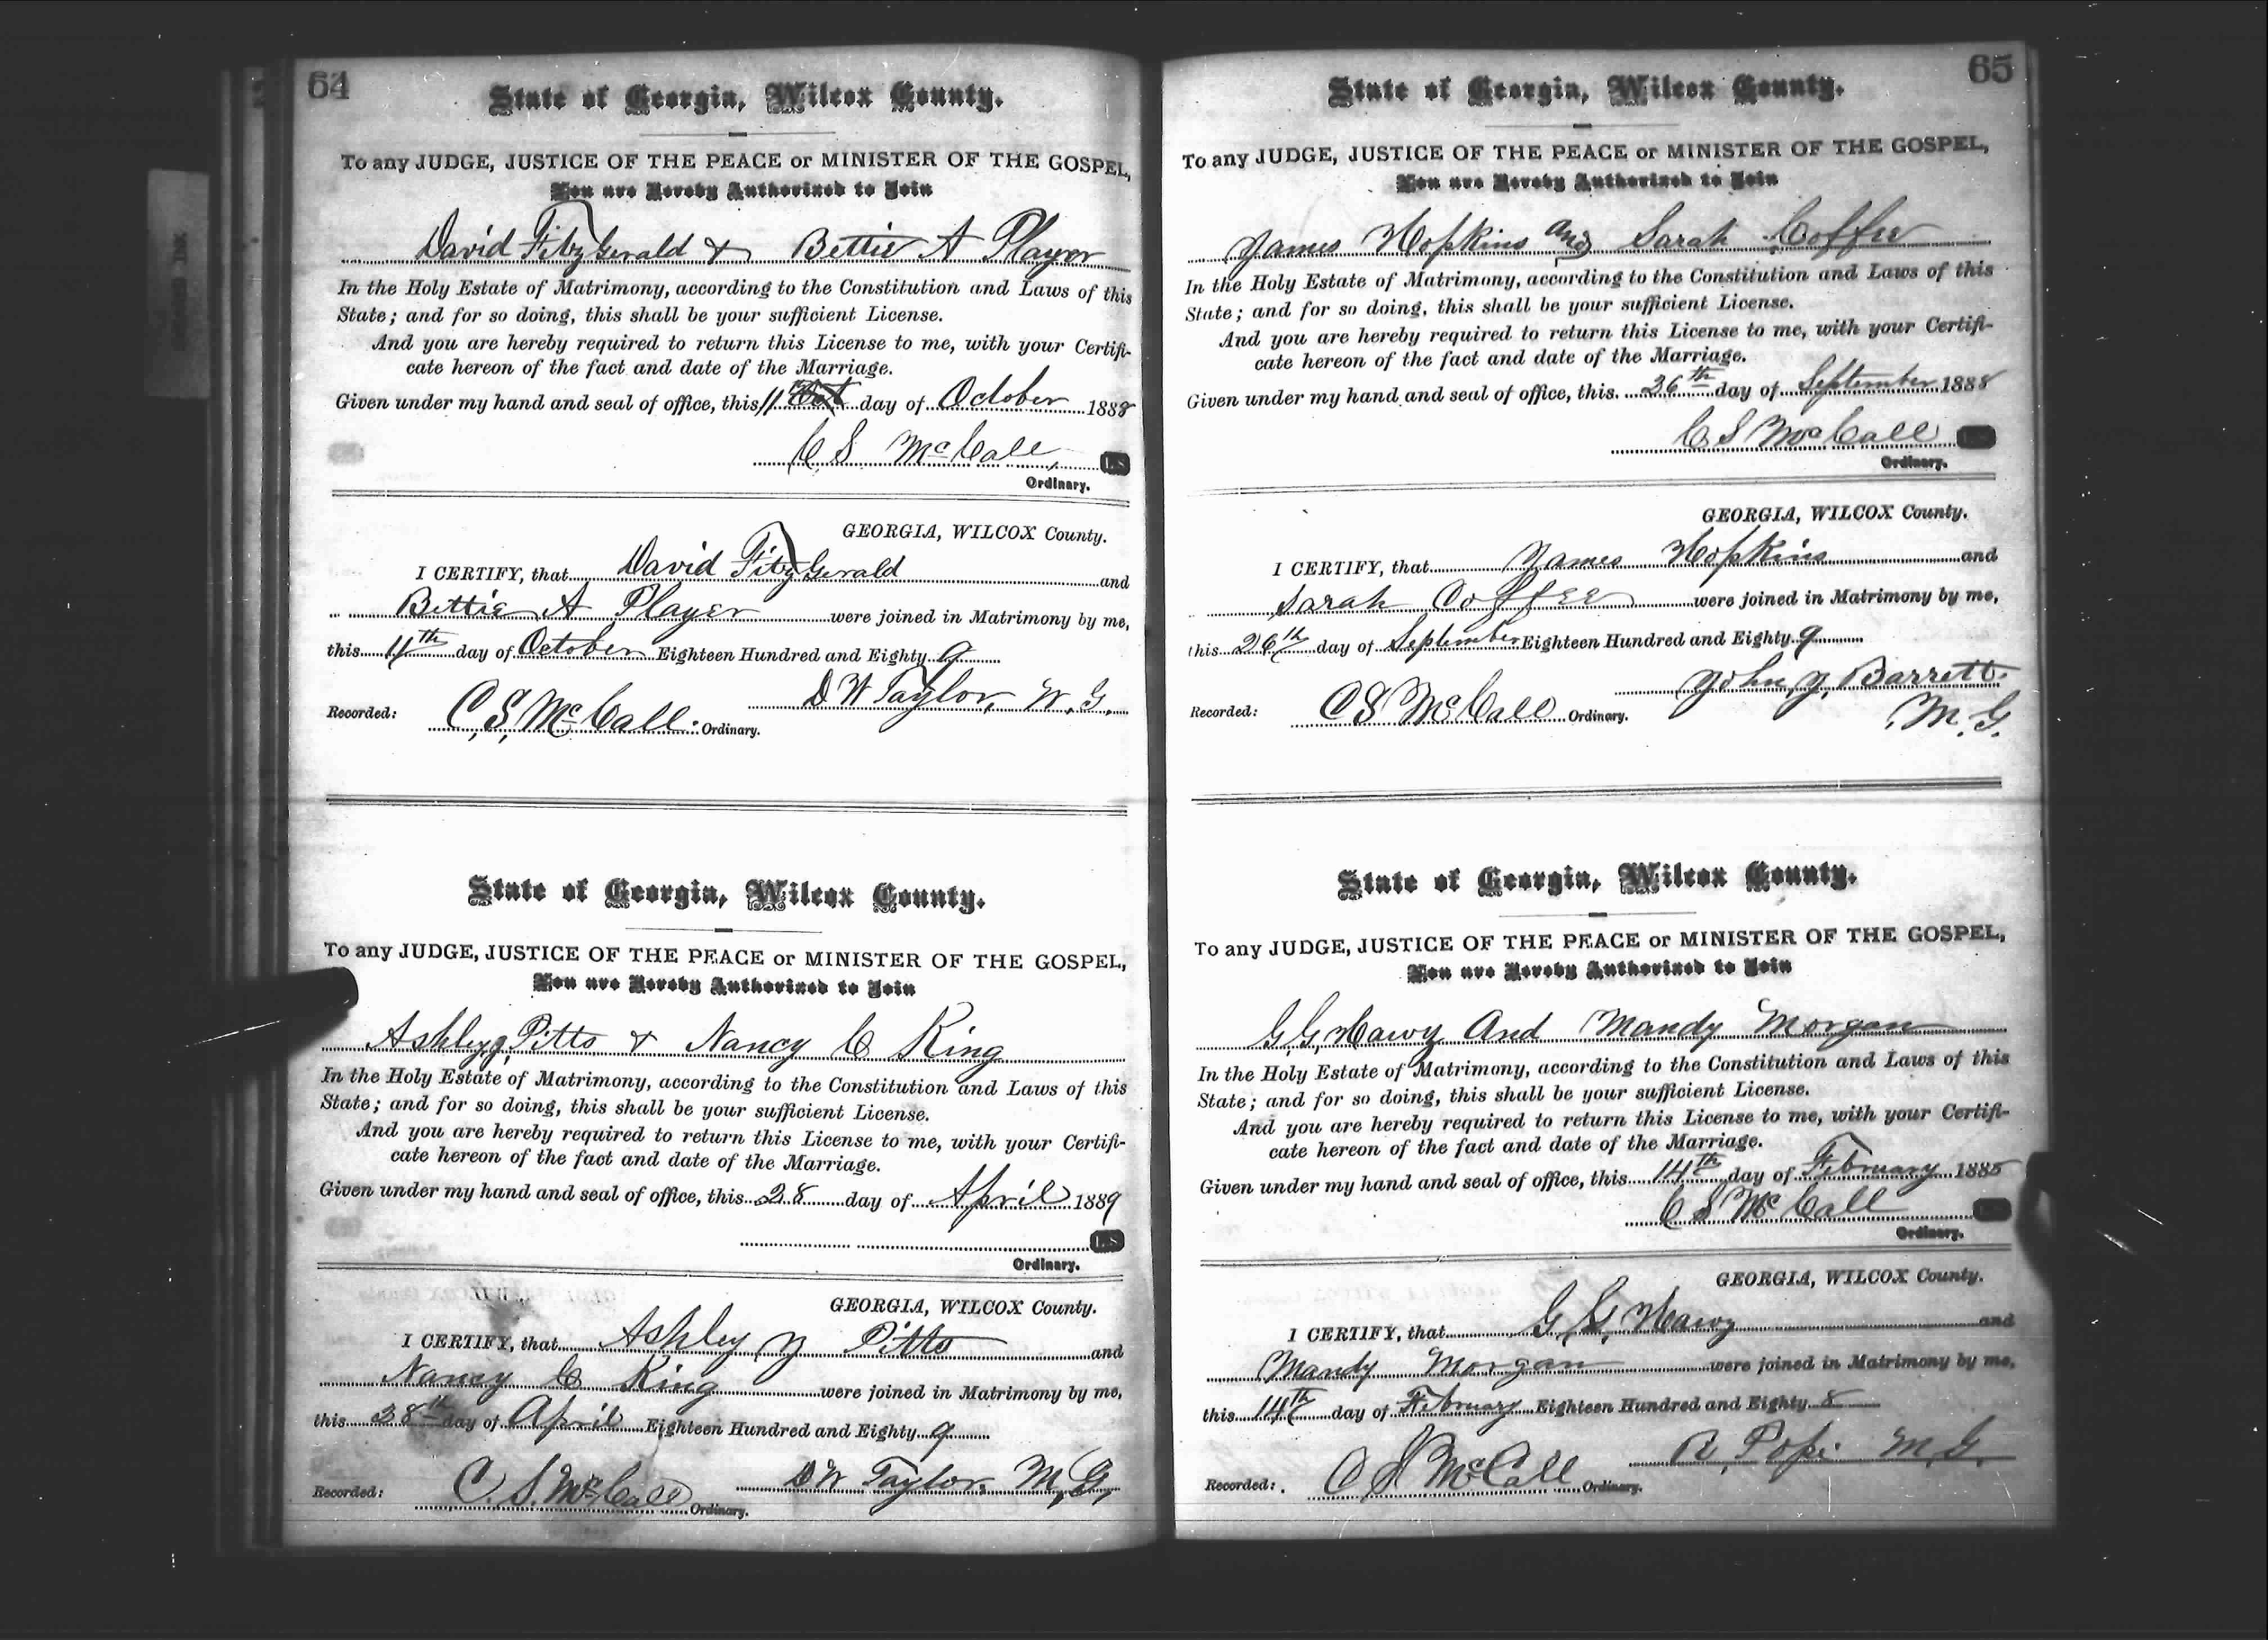 64
State of Georgia, Wilcox County.
To any JUDGE, JUSTICE OF THE PEACE or MINISTER OF THE GOSPEL,
You are Hereby Authorized to Join
David FitzGerald & Bettie A Player
In the Holy Estate of Matrimony, according to the Constitution and Laws of this
State; and for so doing, this shall be your sufficient License.
And you are hereby required to return this License to me, with your Certifi-
cate hereon of the fact and date of the Marriage.
Given under my hand and seal of office, this 11 day of October 1888
C S McCall LS
Ordinary.
GEORGIA, WILCOX County.
I CERTIFY, that David FitzGerald and
Bettie A Player were joined in Matrimony by me,
this 11th day of October Eighteen Hundred and Eighty 9
D W Taylor W.G.
Recorded: C,S, McCall. Ordinary.
State of Georgia, Wilcox County.
To any JUDGE, JUSTICE OF THE PEACE or MINISTER OF THE GOSPEL,
You are Hereby Authorized to Join
Ashley J, Pitts & Nancy C King
In the Holy Estate of Matrimony, according to the Constitution and Laws of this
State; and for so doing, this shall be your sufficient License.
And you are hereby required to return this License to me, with your Certifi-
cate hereon of the fact and date of the Marriage.
Given under my hand and seal of office, this 28 day of April 1889
LS
Ordinary.
GEORGIA, WILCOX County.
I CERTIFY, that Ashley J Pitts and
Nancy C King were joined in Matrimony by me,
this 28th day of April Eighteen Hundred and Eighty 9
D W Taylor. M,G,
Recorded: C. S. McCall Ordinary.
65
State of Georgia, Wilcox County.
To any JUDGE, JUSTICE OF THE PEACE or MINISTER OF THE GOSPEL,
You are Hereby Authorized to Join
James Hopkins and Sarah Coffee
In the Holy Estate of Matrimony, according to the Constitution and Laws of this
State; and for so doing, this shall be your sufficient License.
And you are hereby required to return this License to me, with your Certifi-
cate hereon of the fact and date of the Marriage.
Given under my hand and seal of office, this 26th day of September 1888
C S McCall
Ordinary.
GEORGIA, WILCOX County.
I CERTIFY, that James Hopkins and
Sarah Coffee were joined in Matrimony by me,
this 26th day of September Eighteen Hundred and Eighty 9
John J, Barrett
M.G.
Recorded: C S McCall Ordinary.
State of Georgia, Wilcox County.
To any JUDGE, JUSTICE OF THE PEACE or MINISTER OF THE GOSPEL,
You are Hereby Authorized to Join
G,G, And Mandy Morgan
In the Holy Estate of Matrimony, according to the Constitution and Laws of this
State; and for so doing, this shall be your sufficient License.
And you are hereby required to return this License to me, with your Certifi-
cate hereon of the fact and date of the Marriage.
Given under my hand and seal of office, this 14th day of February 1885
C S McCall
Ordinary.
GEORGIA, WILCOX County.
I CERTIFY, that G, G, and
Mandy Morgan were joined in Matrimony by me,
this 14th day of February Eighteen Hundred and Eighty 8
R, Pope M.G.
Recorded: C S McCall Ordinary.